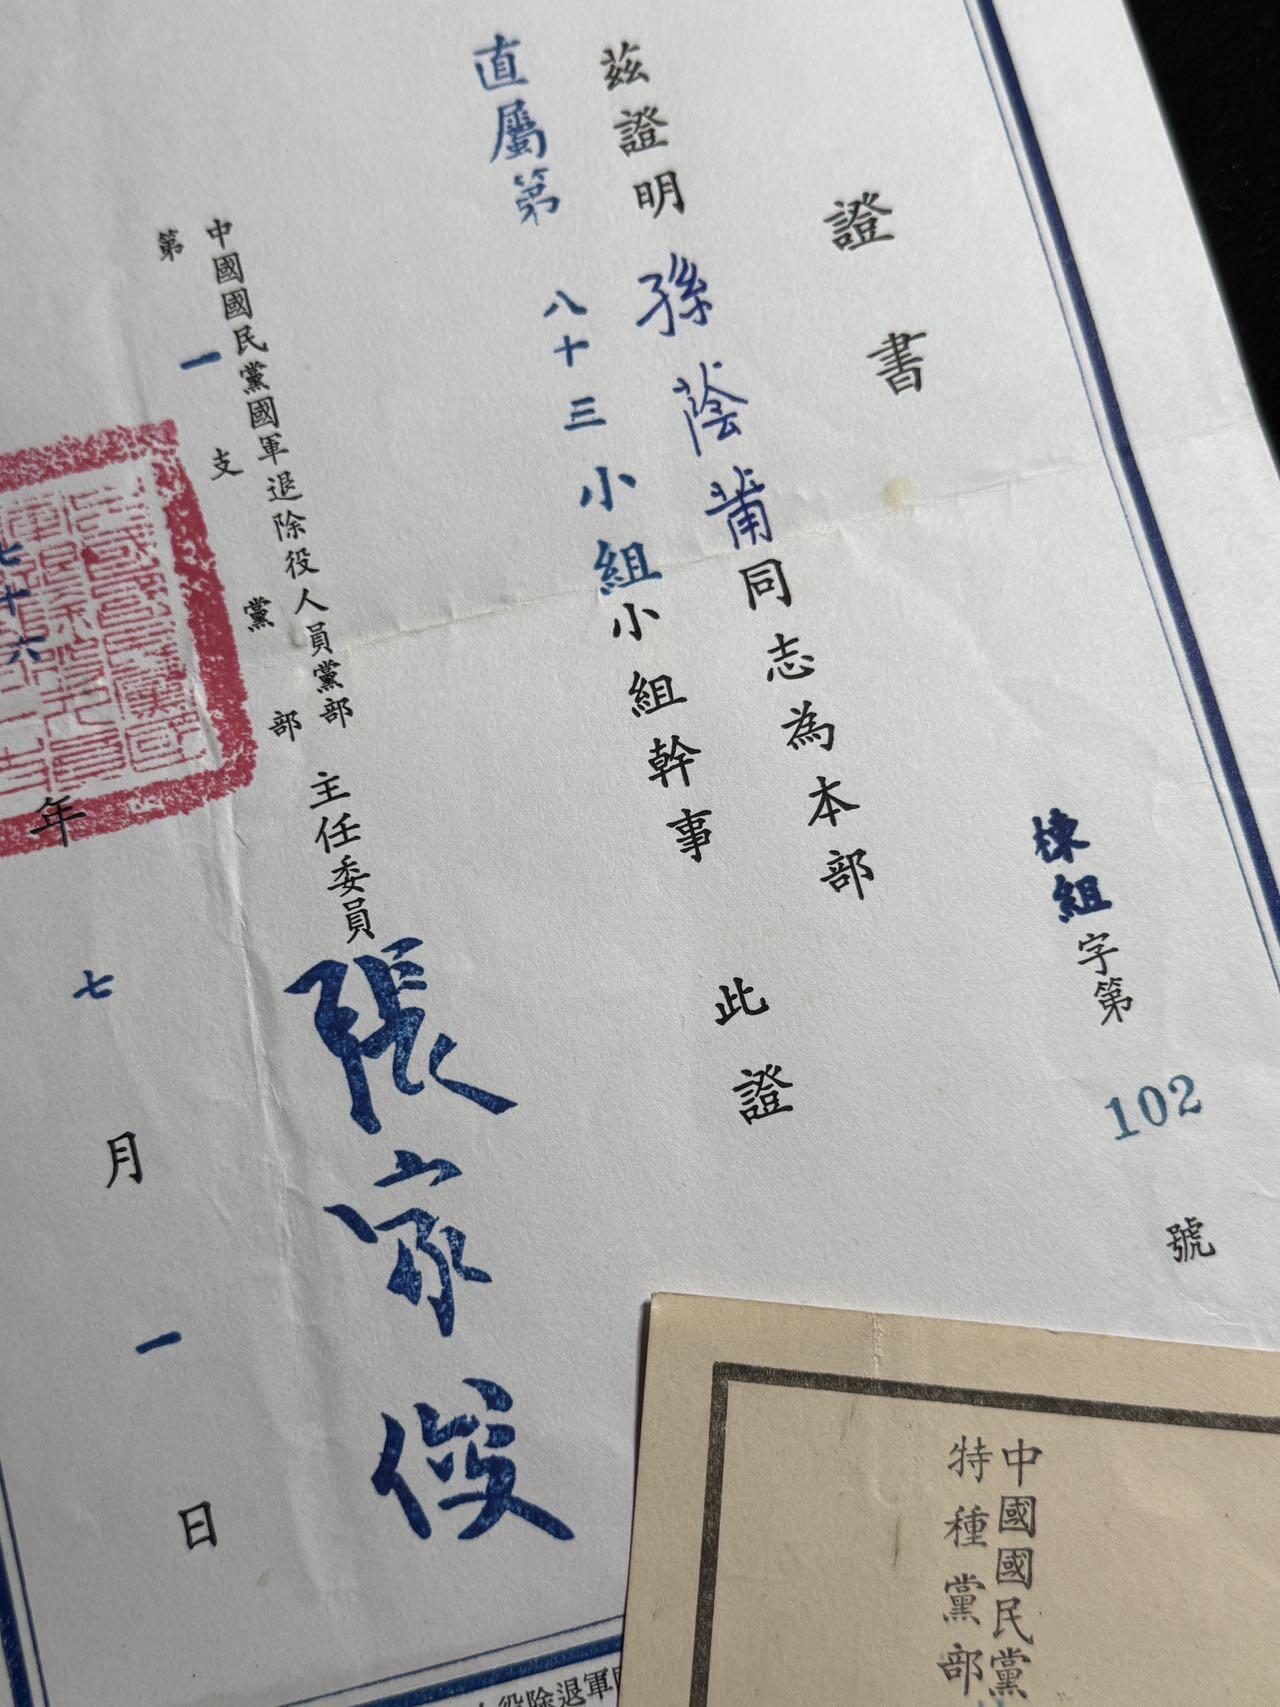 證書
棟組字第102號
茲證明孫蔭莆同志為本部
直屬第八十三小組小組幹事
此證
中國國民黨國軍退除役人員黨部
第一支黨部
主任委員張家俊
七十六年七月一日
中國國民黨
特種黨部